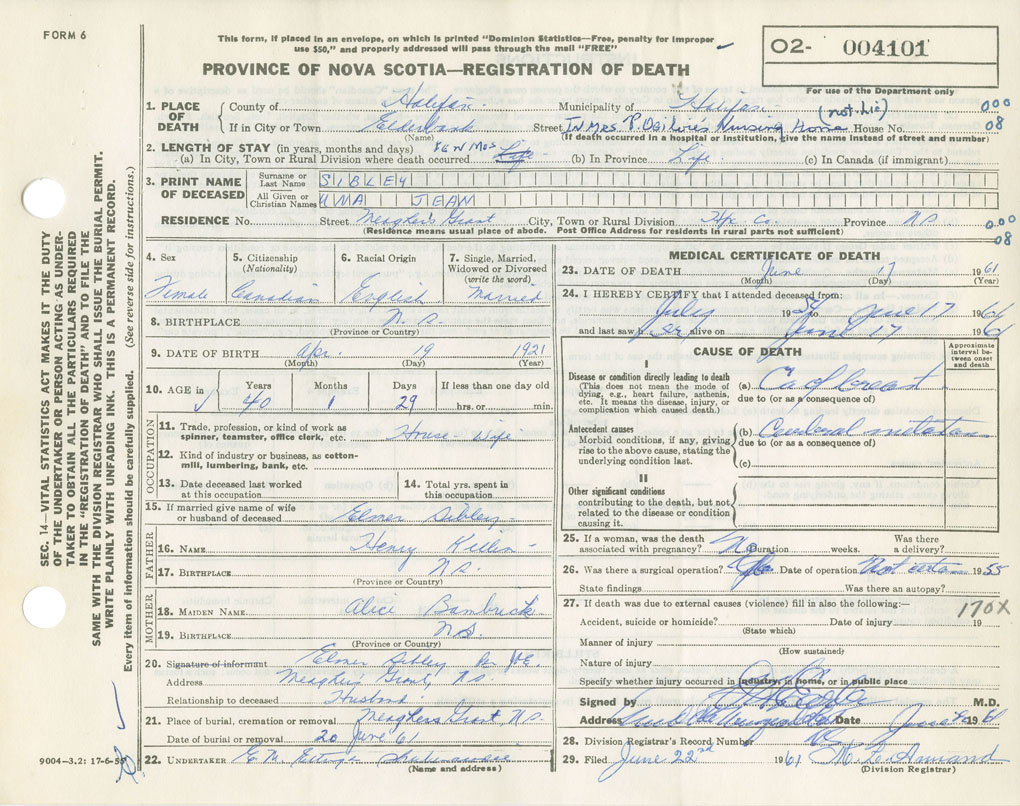 FORM 6
This form, if placed in an envelope, on which is printed "Dominion Statistics—Free, penalty for improper
use $50," and properly addressed will pass through the mail "FREE"
O2- 004101
For use of the Department only
PROVINCE OF NOVA SCOTIA—REGISTRATION OF DEATH
1. PLACE OF DEATH
County of Halifax Municipality of Halifax (not. Lic) 000
If in City or Town Elderbank Street IN MRS P. Ogilvie's Nursing Home House No. 08
(Name) (If death occurred in a hospital or Institution, give the name instead of street and number)
2. LENGTH OF STAY (in years, months and days) FEW MOS
(a) In City, Town or Rural Division where death occurred Life (b) In Province Life (c) In Canada (if immigrant)
3. PRINT NAME OF DECEASED
Surname or Last Name SIBLEY
All Given or Christian Names UNA JEAN
RESIDENCE No. Street Meagher's Grant City, Town or Rural Division Hfx Co. Province N.S. 000
(Residence means usual place of abode. Post Office Address for residents in rural parts not sufficient) 08
4. Sex Female
5. Citizenship (Nationality) Canadian
6. Racial Origin English
7. Single, Married, Widowed or Divorced (write the word) Married
8. BIRTHPLACE N.S.
(Province or Country)
9. DATE OF BIRTH Apr. 19 1921
(Month) (Day) (Year)
10. AGE in Years 40 Months 1 Days 29 If less than one day old hrs. or min.
OCCUPATION
11. Trade, profession, or kind of work as
spinner, teamster, office clerk, etc. House-wife
12. Kind of industry or business, as cotton-
mill, lumbering, bank, etc.
13. Date deceased last worked
at this occupation
14. Total yrs. spent in
this occupation
15. If married give name of wife
or husband of deceased Elmer Sibley
FATHER
16. NAME Henry Killen
17. BIRTHPLACE N.S.
(Province or Country)
MOTHER
18. MAIDEN NAME Alice Bambrick
19. BIRTHPLACE N.S.
(Province or Country)
20. Signature of informant Elmer Sibley
Address Meagher's Grant, N.S.
Relationship to deceased Husband
21. Place of burial, cremation or removal Meaghers Grant, N.S.
Date of burial or removal 20 June 61
22. UNDERTAKER E.M.
(Name and address)
MEDICAL CERTIFICATE OF DEATH
23. DATE OF DEATH June 17 1961
(Month) (Day) (Year)
24. I HEREBY CERTIFY that I attended deceased from:
July 19 to June 17 1961
and last saw her alive on June 17 1961
CAUSE OF DEATH
Approximate interval between onset and death
I
Disease or condition directly leading to death
(This does not mean the mode of
dying, e.g., heart failure, asthenia,
etc. It means the disease, injury, or
complication which caused death.)
(a) Ca of breast
due to (or as a consequence of)
Antecedent causes
Morbid conditions, if any, giving
rise to the above cause, stating the
underlying condition last.
(b) Cerebral
due to (or as a consequence of)
(c)
II
Other significant conditions
contributing to the death, but not
related to the disease or condition
causing it.
25. If a woman, was the death
associated with pregnancy? No Duration weeks. Was there a delivery?
26. Was there a surgical operation? Yes Date of operation Not certain 1955
State findings Was there an autopsy?
27. If death was due to external causes (violence) fill in also the following:— 170X
Accident, suicide or homicide? Date of injury 19
(State which)
Manner of injury
(How sustained)
Nature of injury
Specify whether injury occurred in industry, in home, or in public place
Signed by M.D.
Address Date June 1961
28. Division Registrar's Record Number
29. Filed June 22nd 1961
(Division Registrar)
SEC. 14—VITAL STATISTICS ACT MAKES IT THE DUTY
OF THE UNDERTAKER OR PERSON ACTING AS UNDER-
TAKER TO OBTAIN ALL THE PARTICULARS REQUIRED
IN THE "REGISTRATION OF DEATH" AND TO FILE THE
SAME WITH THE DIVISION REGISTRAR WHO SHALL ISSUE THE BURIAL PERMIT.
WRITE PLAINLY WITH UNFADING INK. THIS IS A PERMANENT RECORD.
Every item of information should be carefully supplied. (See reverse side for instructions.)
9004-3.2: 17-6-55